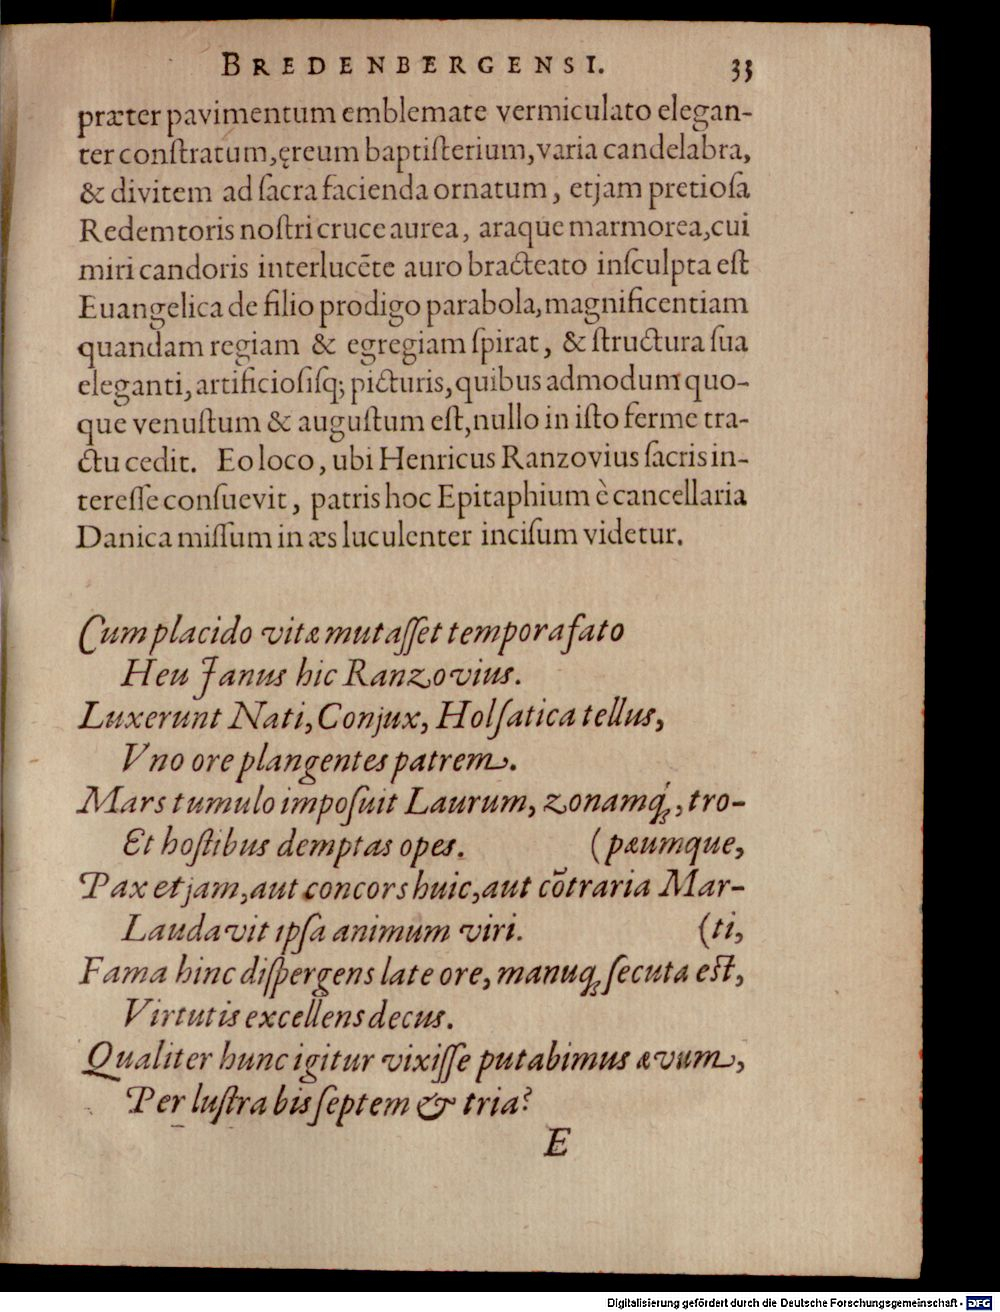 BREDENBERGENSI. 33
præter pavimentum emblemate vermiculato elegan-
ter conſtratum, ęreum baptiſterium, varia candelabra,
& divitem ad ſacra facienda ornatum, etjam pretioſa
Redemtoris noſtri cruce aurea, araque marmorea, cui
miri candoris interlucēte auro bracteato inſculpta eſt
Euangelica de filio prodigo parabola, magnificentiam
quandam regiam & egregiam ſpirat, & ſtructura ſua
eleganti, artificioſiſq; picturis, quibus admodum quo-
que venuſtum & auguſtum eſt, nullo in iſto ferme tra-
ctu cedit. Eo loco, ubi Henricus Ranzovius ſacris in-
tereſſe conſuevit, patris hoc Epitaphium è cancellaria
Danica miſſum in æs luculenter inciſum videtur.
Cum placido vitæ mutaſſet tempora fato
Heu Janus hic Ranzovius.
Luxerunt Nati, Conjux, Holſatica tellus,
Vno ore plangentes patrem.
Mars tumulo impoſuit Laurum, zonamq́;, tro-
Et hoſtibus demptas opes. (pæumque,
Pax etjam, aut concors huic, aut cōtraria Mar-
Laudavit ipſa animum viri. (ti,
Fama hinc diſpergens late ore, manuq; ſecuta eſt,
Virtutis excellens decus.
Qualiter hunc igitur vixiſſe putabimus ævum,
Per luſtra bis ſeptem & tria?
E
Digitalisierung gefördert durch die Deutsche Forschungsgemeinschaft - DFG